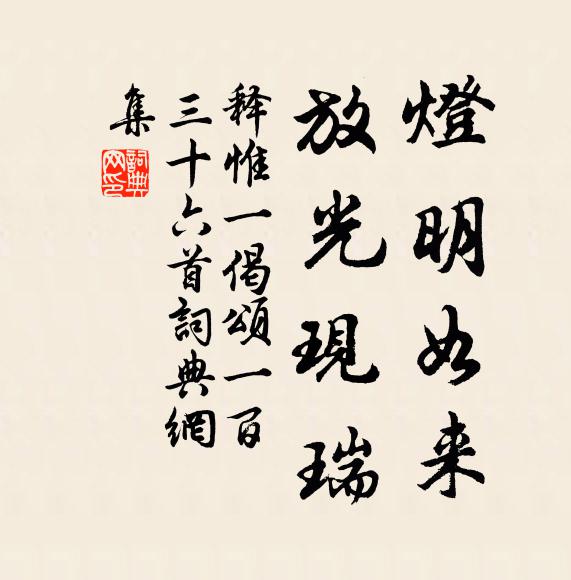 燈明如来
放光現瑞
释惟一偈頌一百
三十六首詞典網
集
詞典网印